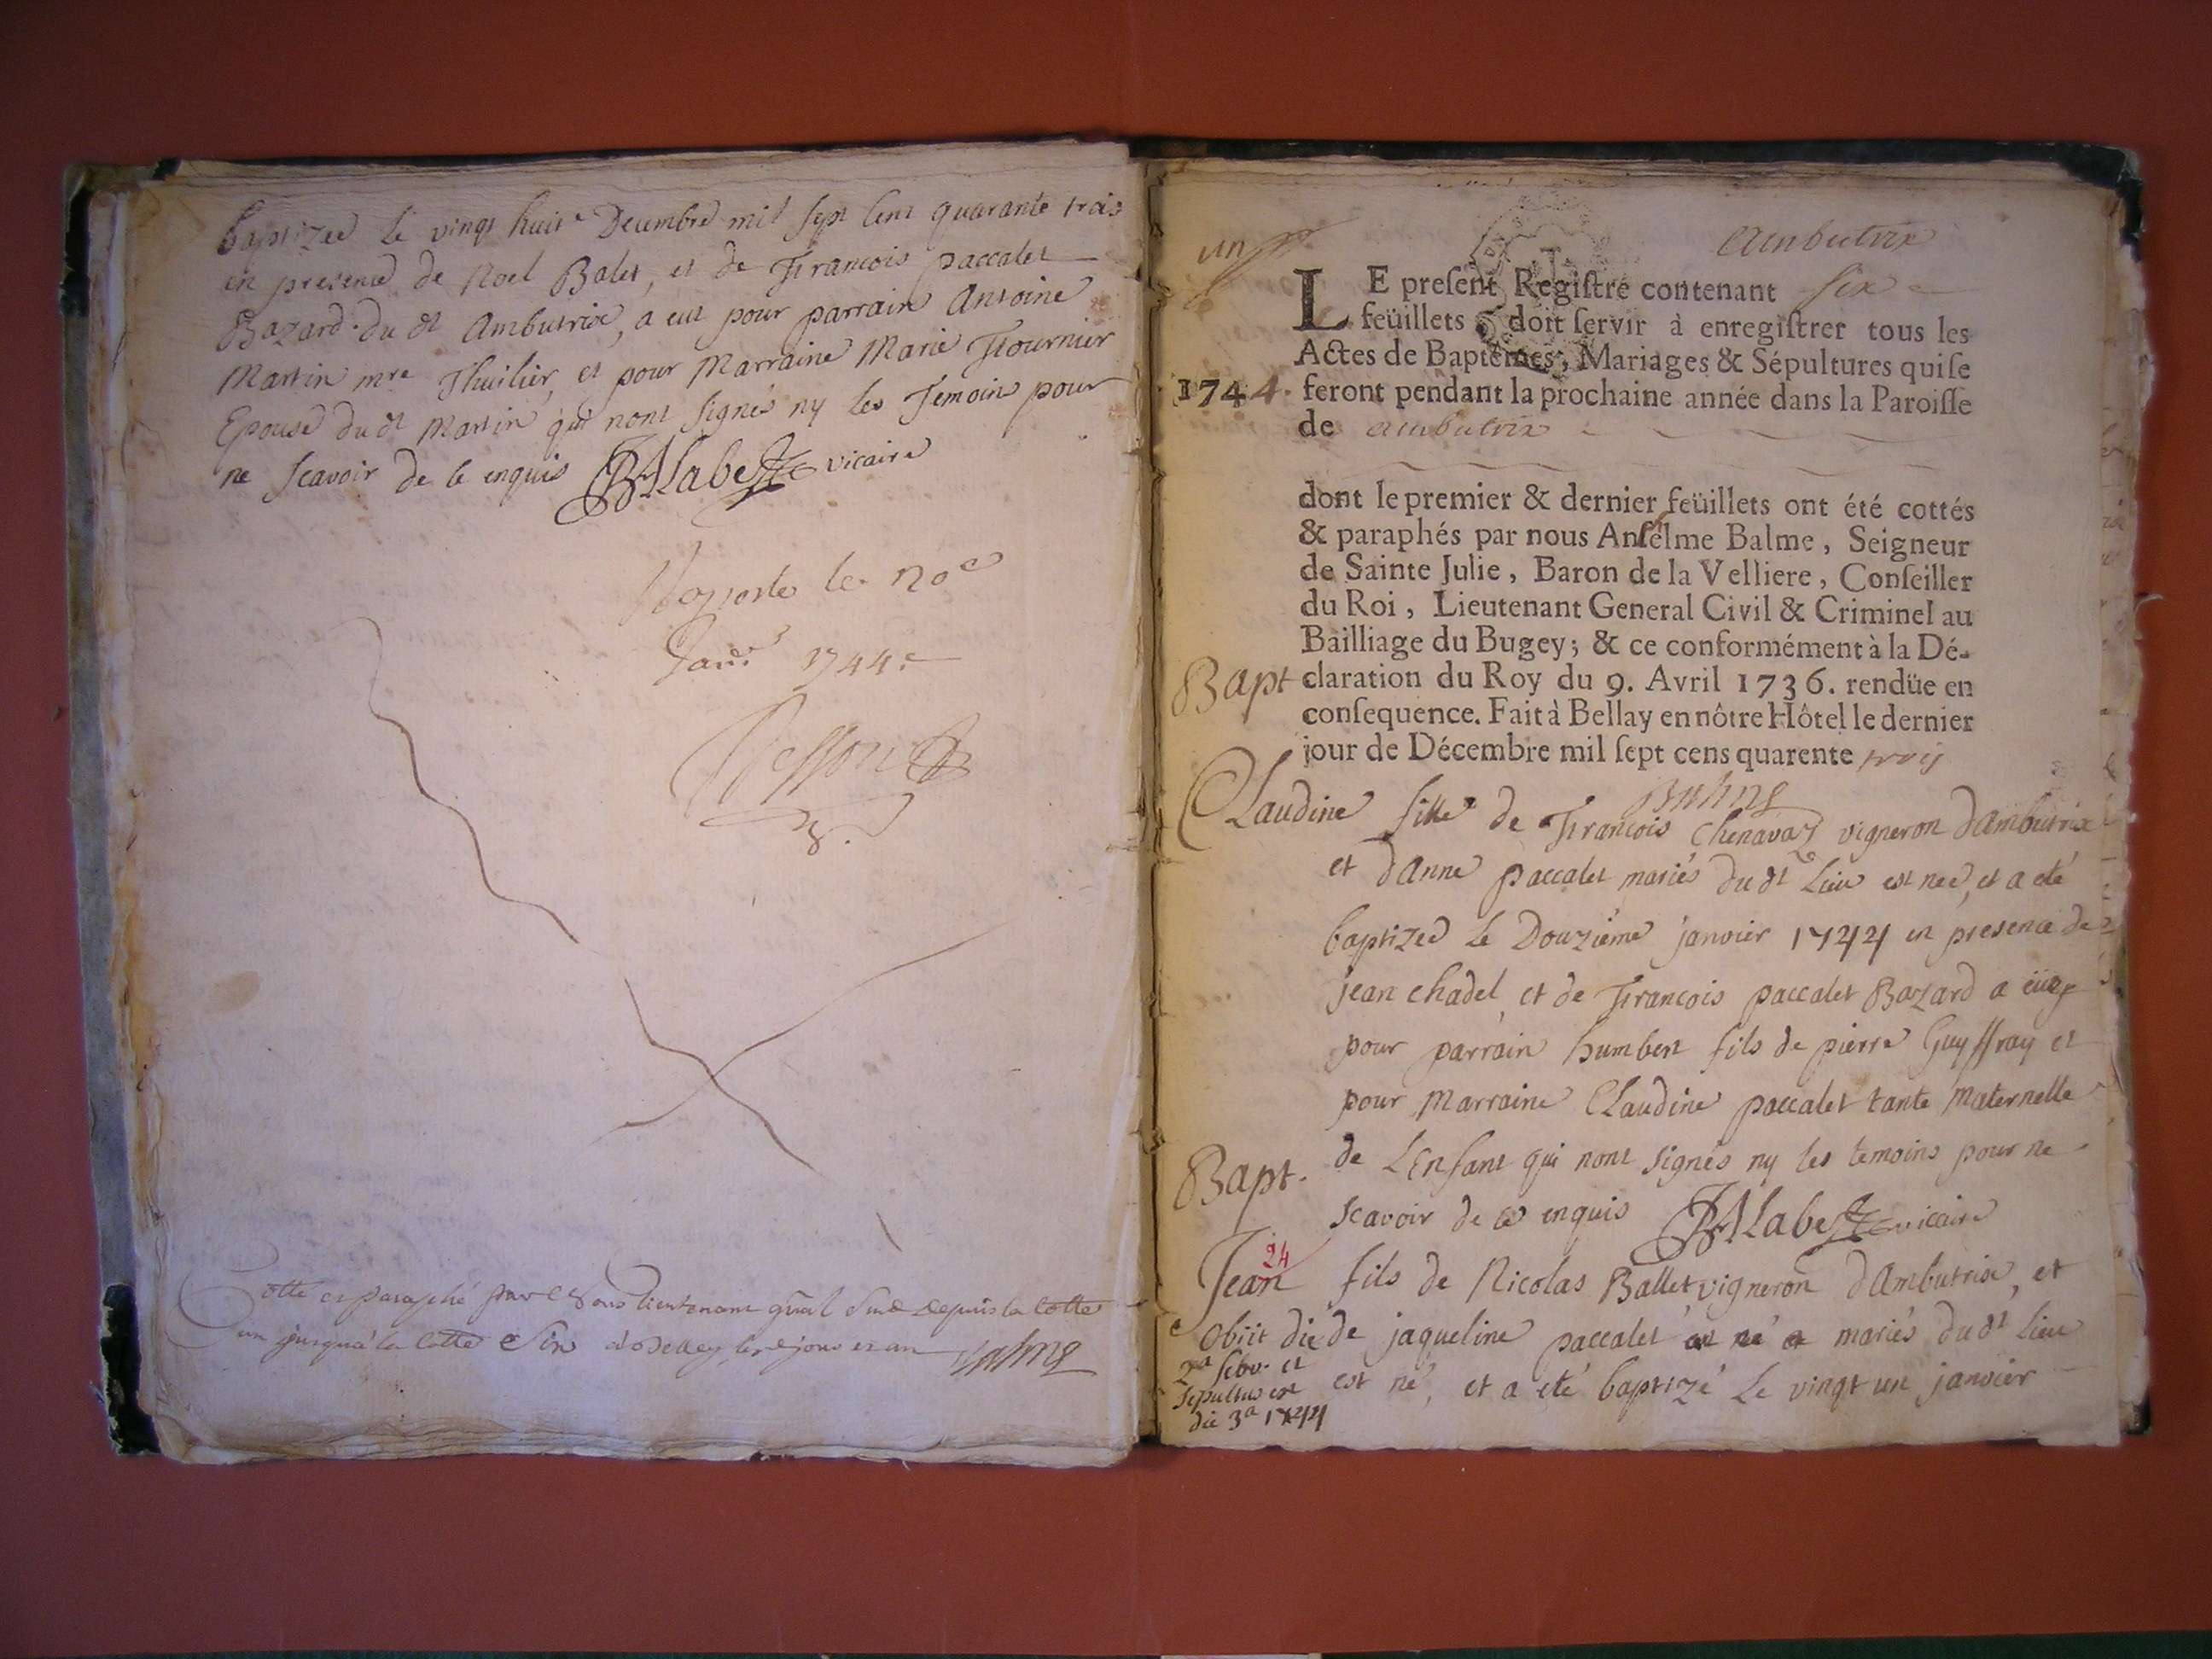 baptizeé le vingt huit.e Decembre mil sept cent quarante trois
en presence de Noel Balet, et de Francois paccalet
Bazard du dt Ambutrix, a eut pour parrain Antoine
Martin mre Thuilier, et pour Marraine Marie Fournier
Epouse du dt Martin qui nont signés ny les Temoins pour
ne scavoir de ce enquis vicaire
le 20e
Janr 1744.
Cotté et paraphé par Nous lieutenant gñal depuis la Cotte
un jusqua la Cotte six a Belley les jour et an Balme
un
Ambutrix
LE present Registre contenant six
feüillets doit servir à enregistrer tous les
Actes de Baptêmes, Mariages & Sépultures qui se
1744. feront pendant la prochaine année dans la Paroisse
de ambutrix
dont le premier & dernier feüillets ont été cottés
& paraphés par nous Anselme Balme, Seigneur
de Sainte Julie, Baron de la Velliere, Conseiller
du Roi, Lieutenant General Civil & Criminel au
Bailliage du Bugey; & ce conformément à la Dé-
claration du Roy du 9. Avril 1736. rendüe en
consequence. Fait à Bellay en nôtre Hôtel le dernier
jour de Décembre mil sept cens quarente trois
Balme
Bapt
Claudine fille de Francois Chenavaz vigneron dambutrix
et dAnne paccalet mariés du dt Lieu est neé, et a eté
baptizeé le Douziéme janvier 1744 en presence de
jean chadel, et de Francois paccalet Bazard a eüe
pour parrain humbert fils de pierre Guyffray et
pour Marraine Claudine paccalet tante Maternelle
de LEnfant qui nont signés ny les temoins pour ne
scavoir de ce enquis vicaire
Bapt.
24
Jean fils de Nicolas Ballet vigneron dAmbutrix, et
de jaqueline paccalet mariés du dt Lieu
est né, et a eté baptizé Le vingt un janvier
obiit die
2a febr. et
sepultus est
die 3a 1744